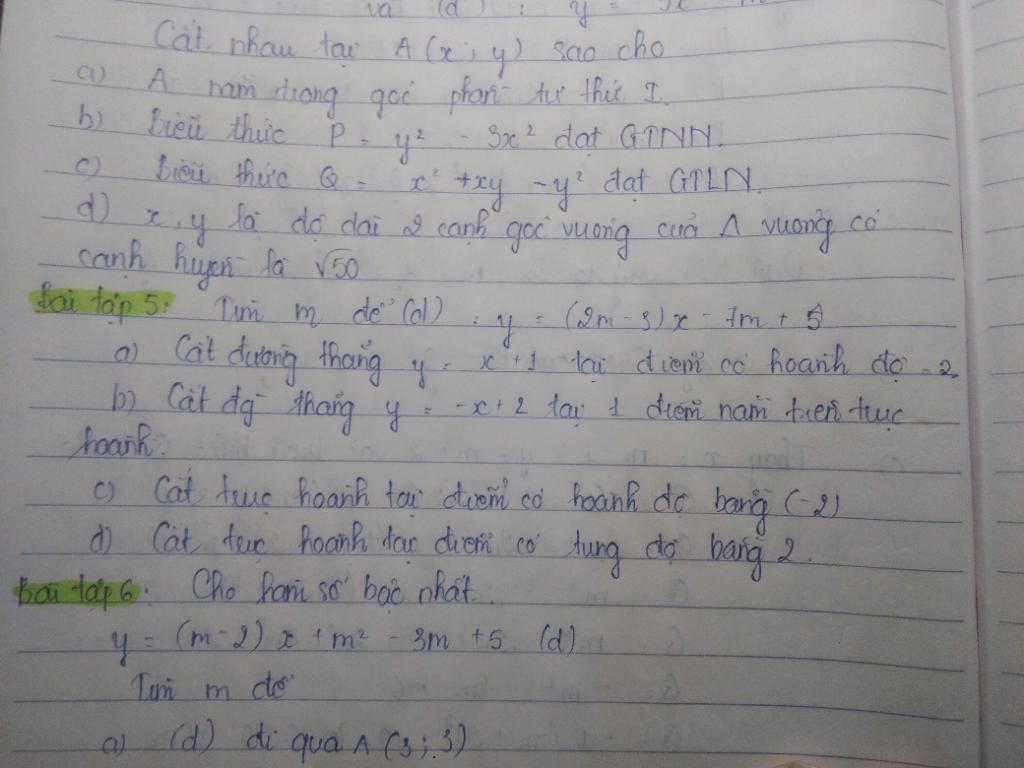 và (d) : y =
Cắt nhau tại A(x; y) sao cho
a) A nằm trong góc phần tư thứ I.
b) Biểu thức P = y² - 3x² đạt GTNN.
c) Biểu thức Q = x² + xy - y² đạt GTLN.
d) x, y là độ dài 2 cạnh góc vuông của Δ vuông có
cạnh huyền là √50
Bài tập 5: Tìm m để (d) : y = (2m - 3)x - 7m + 5
a) Cắt đường thẳng y = x + 1 tại điểm có hoành độ = 2
b) Cắt đg thẳng y = -x + 2 tại 1 điểm nằm trên trục
hoành.
c) Cắt trục hoành tại điểm có hoành độ bằng (-2)
d) Cắt trục hoành tại điểm có tung độ bằng 2.
Bài tập 6: Cho hàm số bậc nhất
y = (m - 2)x + m² - 3m + 5 (d)
Tìm m để
a) (d) đi qua A(3; 3)